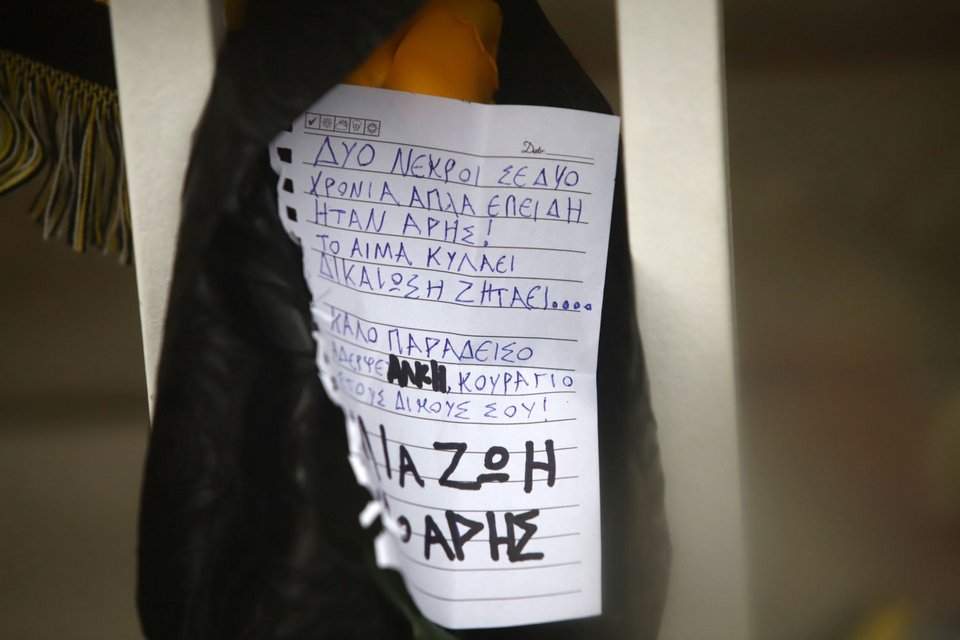 Date
ΔΥΟ ΝΕΚΡΟΙ ΣΕ ΔΥΟ
ΧΡΟΝΙΑ ΑΠΛΑ ΕΠΕΙΔΗ
ΗΤΑΝ ΑΡΗΣ!
ΤΟ ΑΙΜΑ ΚΥΛΑΕΙ
ΔΙΚΑΙΩΣΗ ΖΗΤΑΕΙ....
ΚΑΛΟ ΠΑΡΑΔΕΙΣΟ
ΑΔΕΡΦΕ ΑΛΚΗ, ΚΟΥΡΑΓΙΟ
ΣΤΟΥΣ ΔΙΚΟΥΣ ΣΟΥ!
ΜΙΑ ΖΩΗ
ΑΡΗΣ